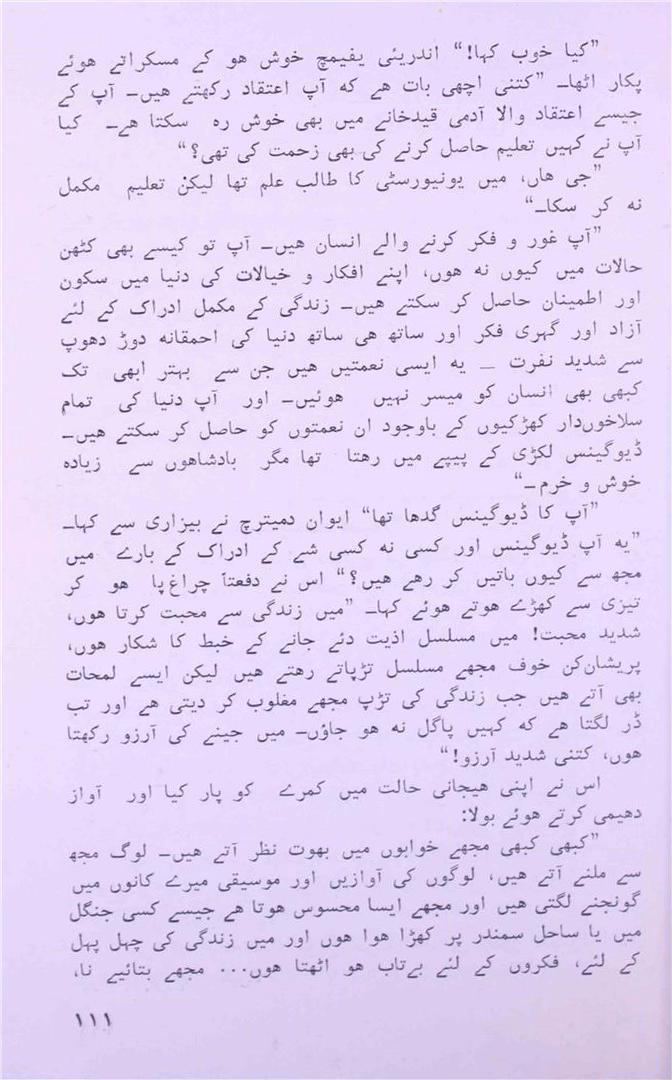 ”کیا خوب کہا!“ اندریئی یفیمچ خوش ھو کے مسکراتے ھوئے
پکار اٹھا۔ ”کتنی اچھی بات ھے کہ آپ اعتقاد رکھتے ھیں۔ آپ کے
جیسے اعتقاد والا آدمی قیدخانے میں بھی خوش رہ سکتا ھے۔ کیا
آپ نے کہیں تعلیم حاصل کرنے کی بھی زحمت کی تھی؟“
”جی ھاں، میں یونیورسٹی کا طالب علم تھا لیکن تعلیم مکمل
نہ کر سکا۔“
”آپ غور و فکر کرنے والے انسان ھیں۔ آپ تو کیسے بھی کٹھن
حالات میں کیوں نہ ھوں، اپنے افکار و خیالات کی دنیا میں سکون
اور اطمینان حاصل کر سکتے ھیں۔ زندگی کے مکمل ادراک کے لئے
آزاد اور گہری فکر اور ساتھ ھی ساتھ دنیا کی احمقانہ دوڑ دھوپ
سے شدید نفرت — یہ ایسی نعمتیں ھیں جن سے بہتر ابھی تک
کبھی بھی انسان کو میسر نہیں ھوئیں۔ اور آپ دنیا کی تمام
سلاخوں‌دار کھڑکیوں کے باوجود ان نعمتوں کو حاصل کر سکتے ھیں۔
ڈیوگینس لکڑی کے پیپے میں رھتا تھا مگر بادشاھوں سے زیادہ
خوش و خرم۔“
”آپ کا ڈیوگینس گدھا تھا“ ایوان دمیترچ نے بیزاری سے کہا۔
”یہ آپ ڈیوگینس اور کسی نہ کسی شے کے ادراک کے بارے میں
مجھ سے کیوں باتیں کر رھے ھیں؟“ اس نے دفعتاً چراغ‌پا ھو کر
تیزی سے کھڑے ھوتے ھوئے کہا۔ ”میں زندگی سے محبت کرتا ھوں،
شدید محبت! میں مسلسل اذیت دئے جانے کے خبط کا شکار ھوں،
پریشان‌کن خوف مجھے مسلسل تڑپاتے رھتے ھیں لیکن ایسے لمحات
بھی آتے ھیں جب زندگی کی تڑپ مجھے مغلوب کر دیتی ھے اور تب
ڈر لگتا ھے کہ کہیں پاگل نہ ھو جاؤں۔ میں جینے کی آرزو رکھتا
ھوں، کتنی شدید آرزو!“
اس نے اپنی ھیجانی حالت میں کمرے کو پار کیا اور آواز
دھیمی کرتے ھوئے بولا:
”کبھی کبھی مجھے خوابوں میں بھوت نظر آتے ھیں۔ لوگ مجھ
سے ملنے آتے ھیں، لوگوں کی آوازیں اور موسیقی میرے کانوں میں
گونجنے لگتی ھیں اور مجھے ایسا محسوس ھوتا ھے جیسے کسی جنگل
میں یا ساحل سمندر پر کھڑا ھوا ھوں اور میں زندگی کی چہل پہل
کے لئے، فکروں کے لئے بےتاب ھو اٹھتا ھوں... مجھے بتائیے نا،
۱۱۱